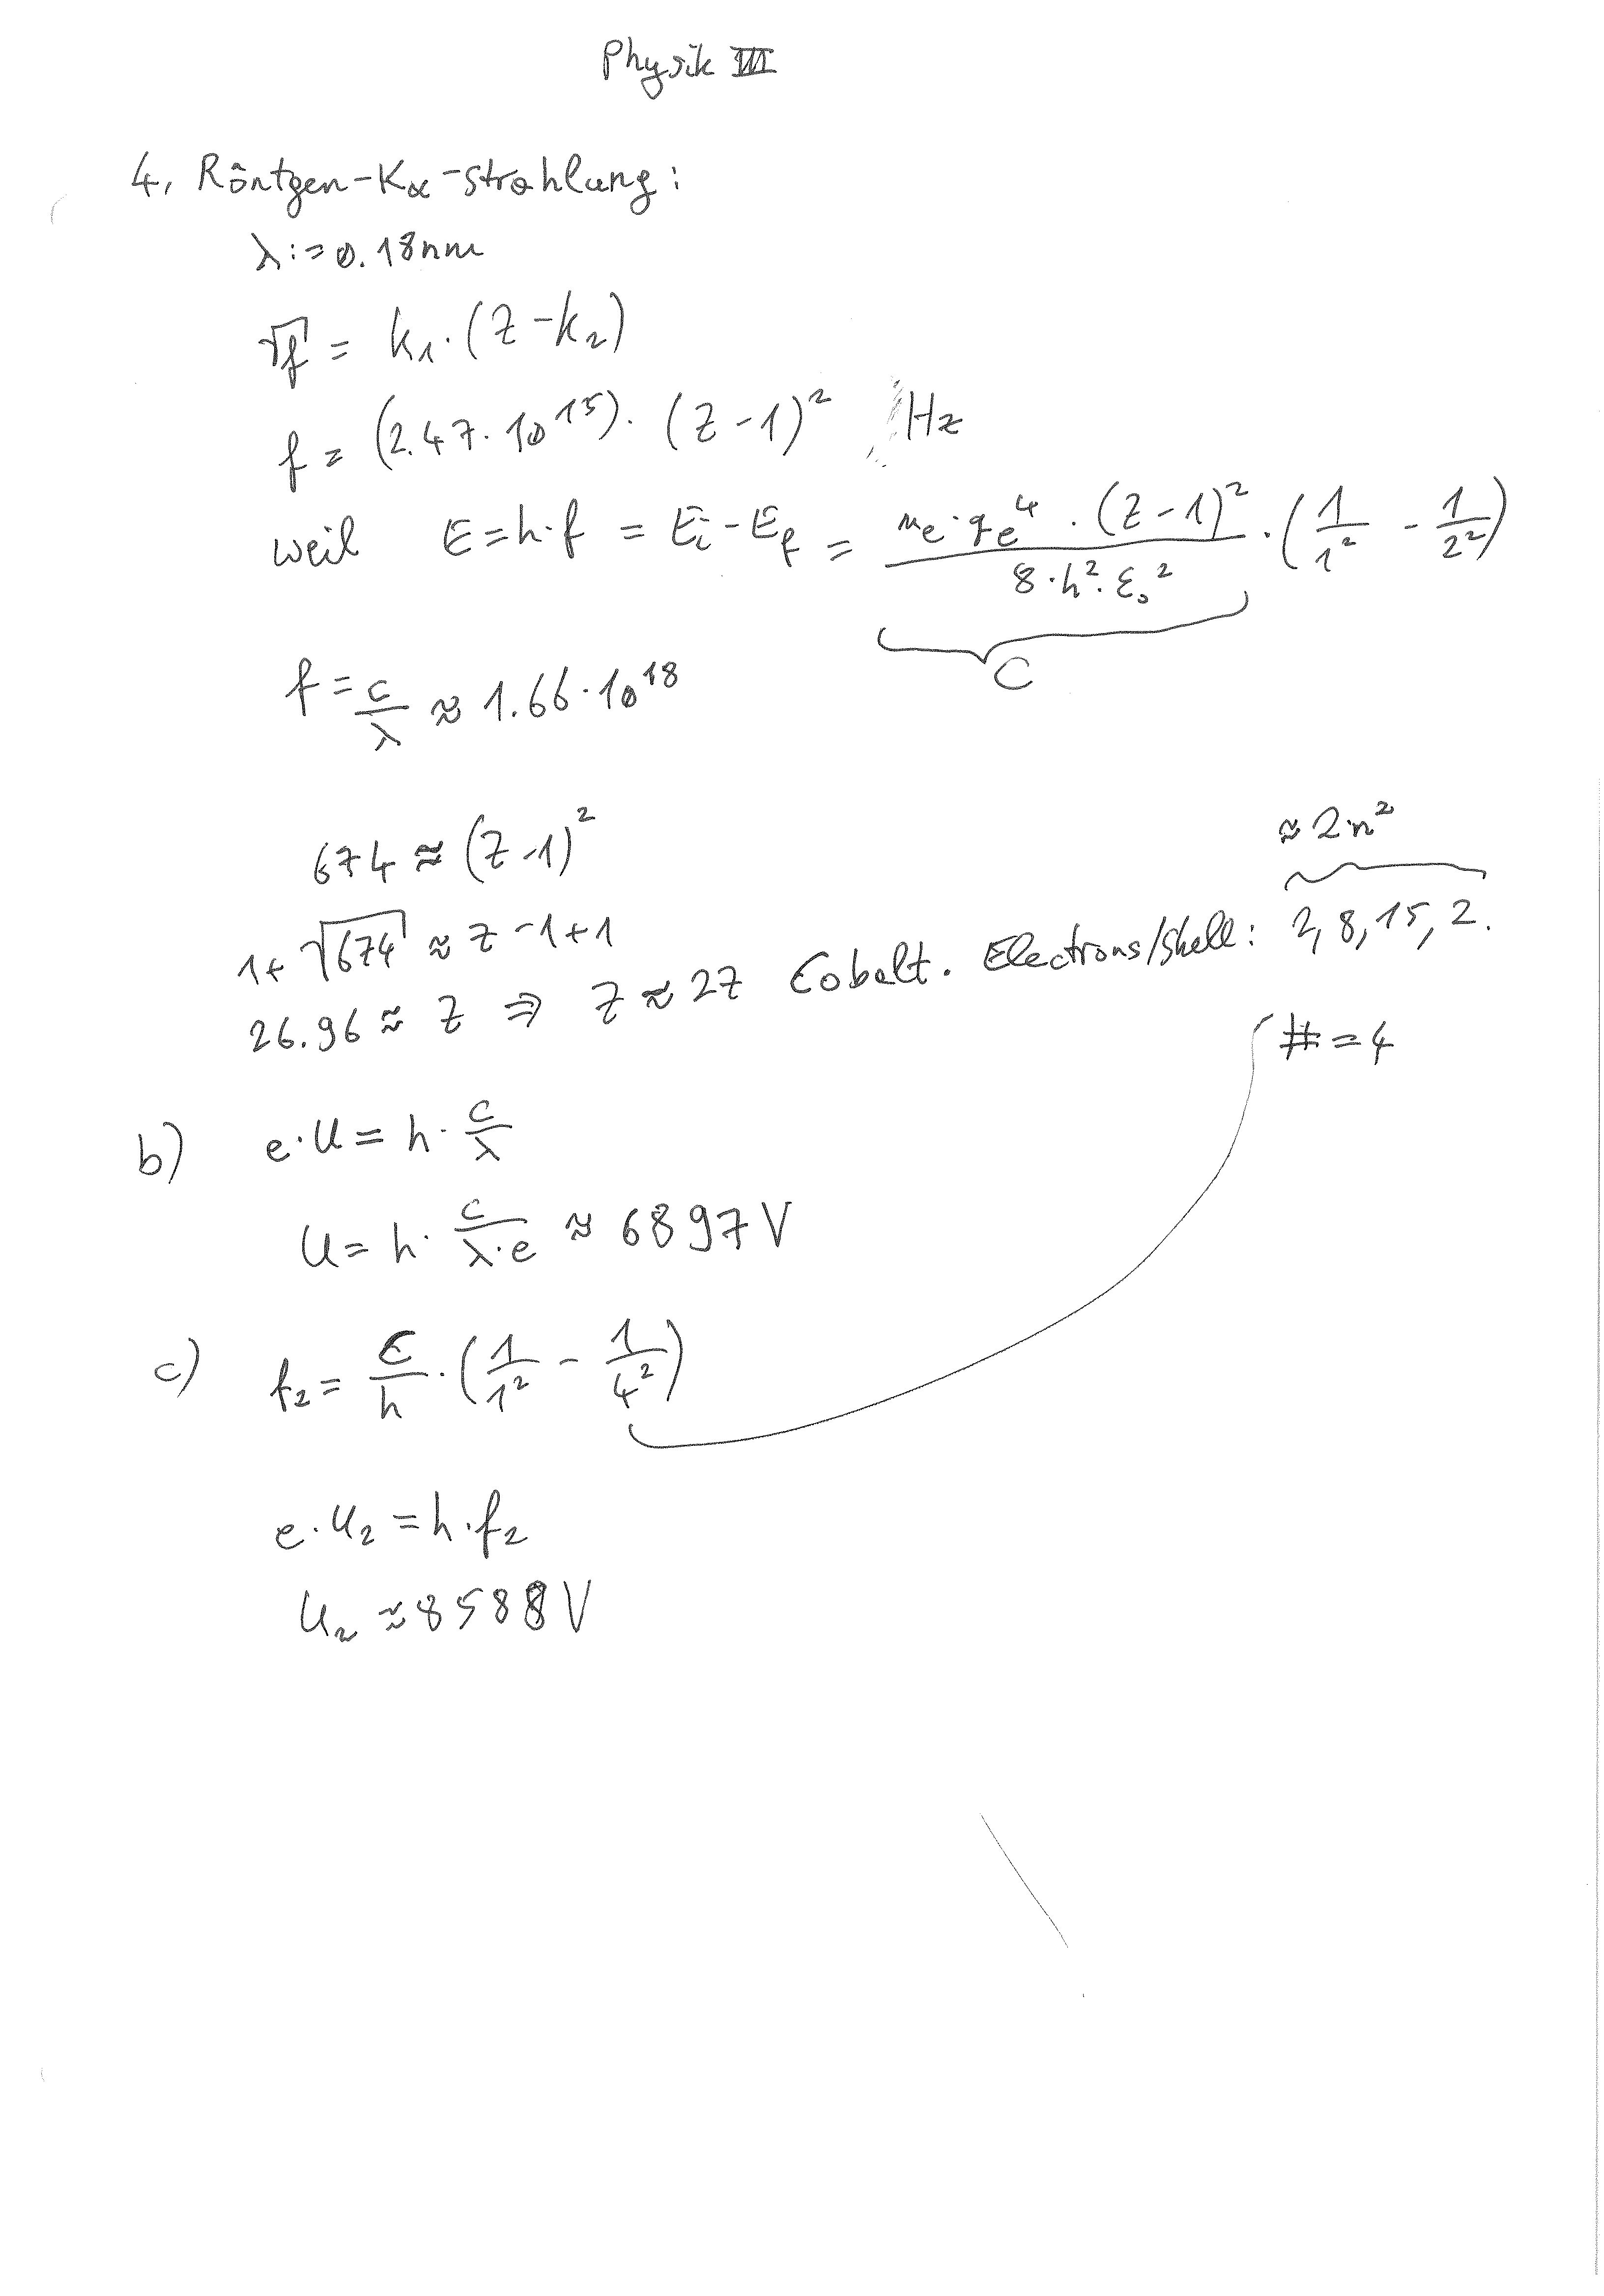 Physik III
4, Röntgen-Kα-Strahlung:
λ := 0.18nm
√f = k₁·(Z-k₂)
f = (2.47·10¹⁵)·(Z-1)² Hz
weil E=h·f = Eᵢ-E_f = (mₑ·qₑ⁴·(Z-1)²)/(8·h²·ε₀²)·(1/1² - 1/2²)
C
f = c/λ ≈ 1.66·10¹⁸
674 ≈ (Z-1)²
≈ 2·n²
1+√674 ≈ Z-1+1
26.96 ≈ Z ⇒ Z ≈ 27 Cobalt. Electrons/Shell: 2,8,15,2.
# = 4
b) e·U = h·c/λ
U = h·c/(λ·e) ≈ 6897 V
c) f₂ = C/h·(1/1² - 1/4²)
e·U₂ = h·f₂
U₂ ≈ 8588 V